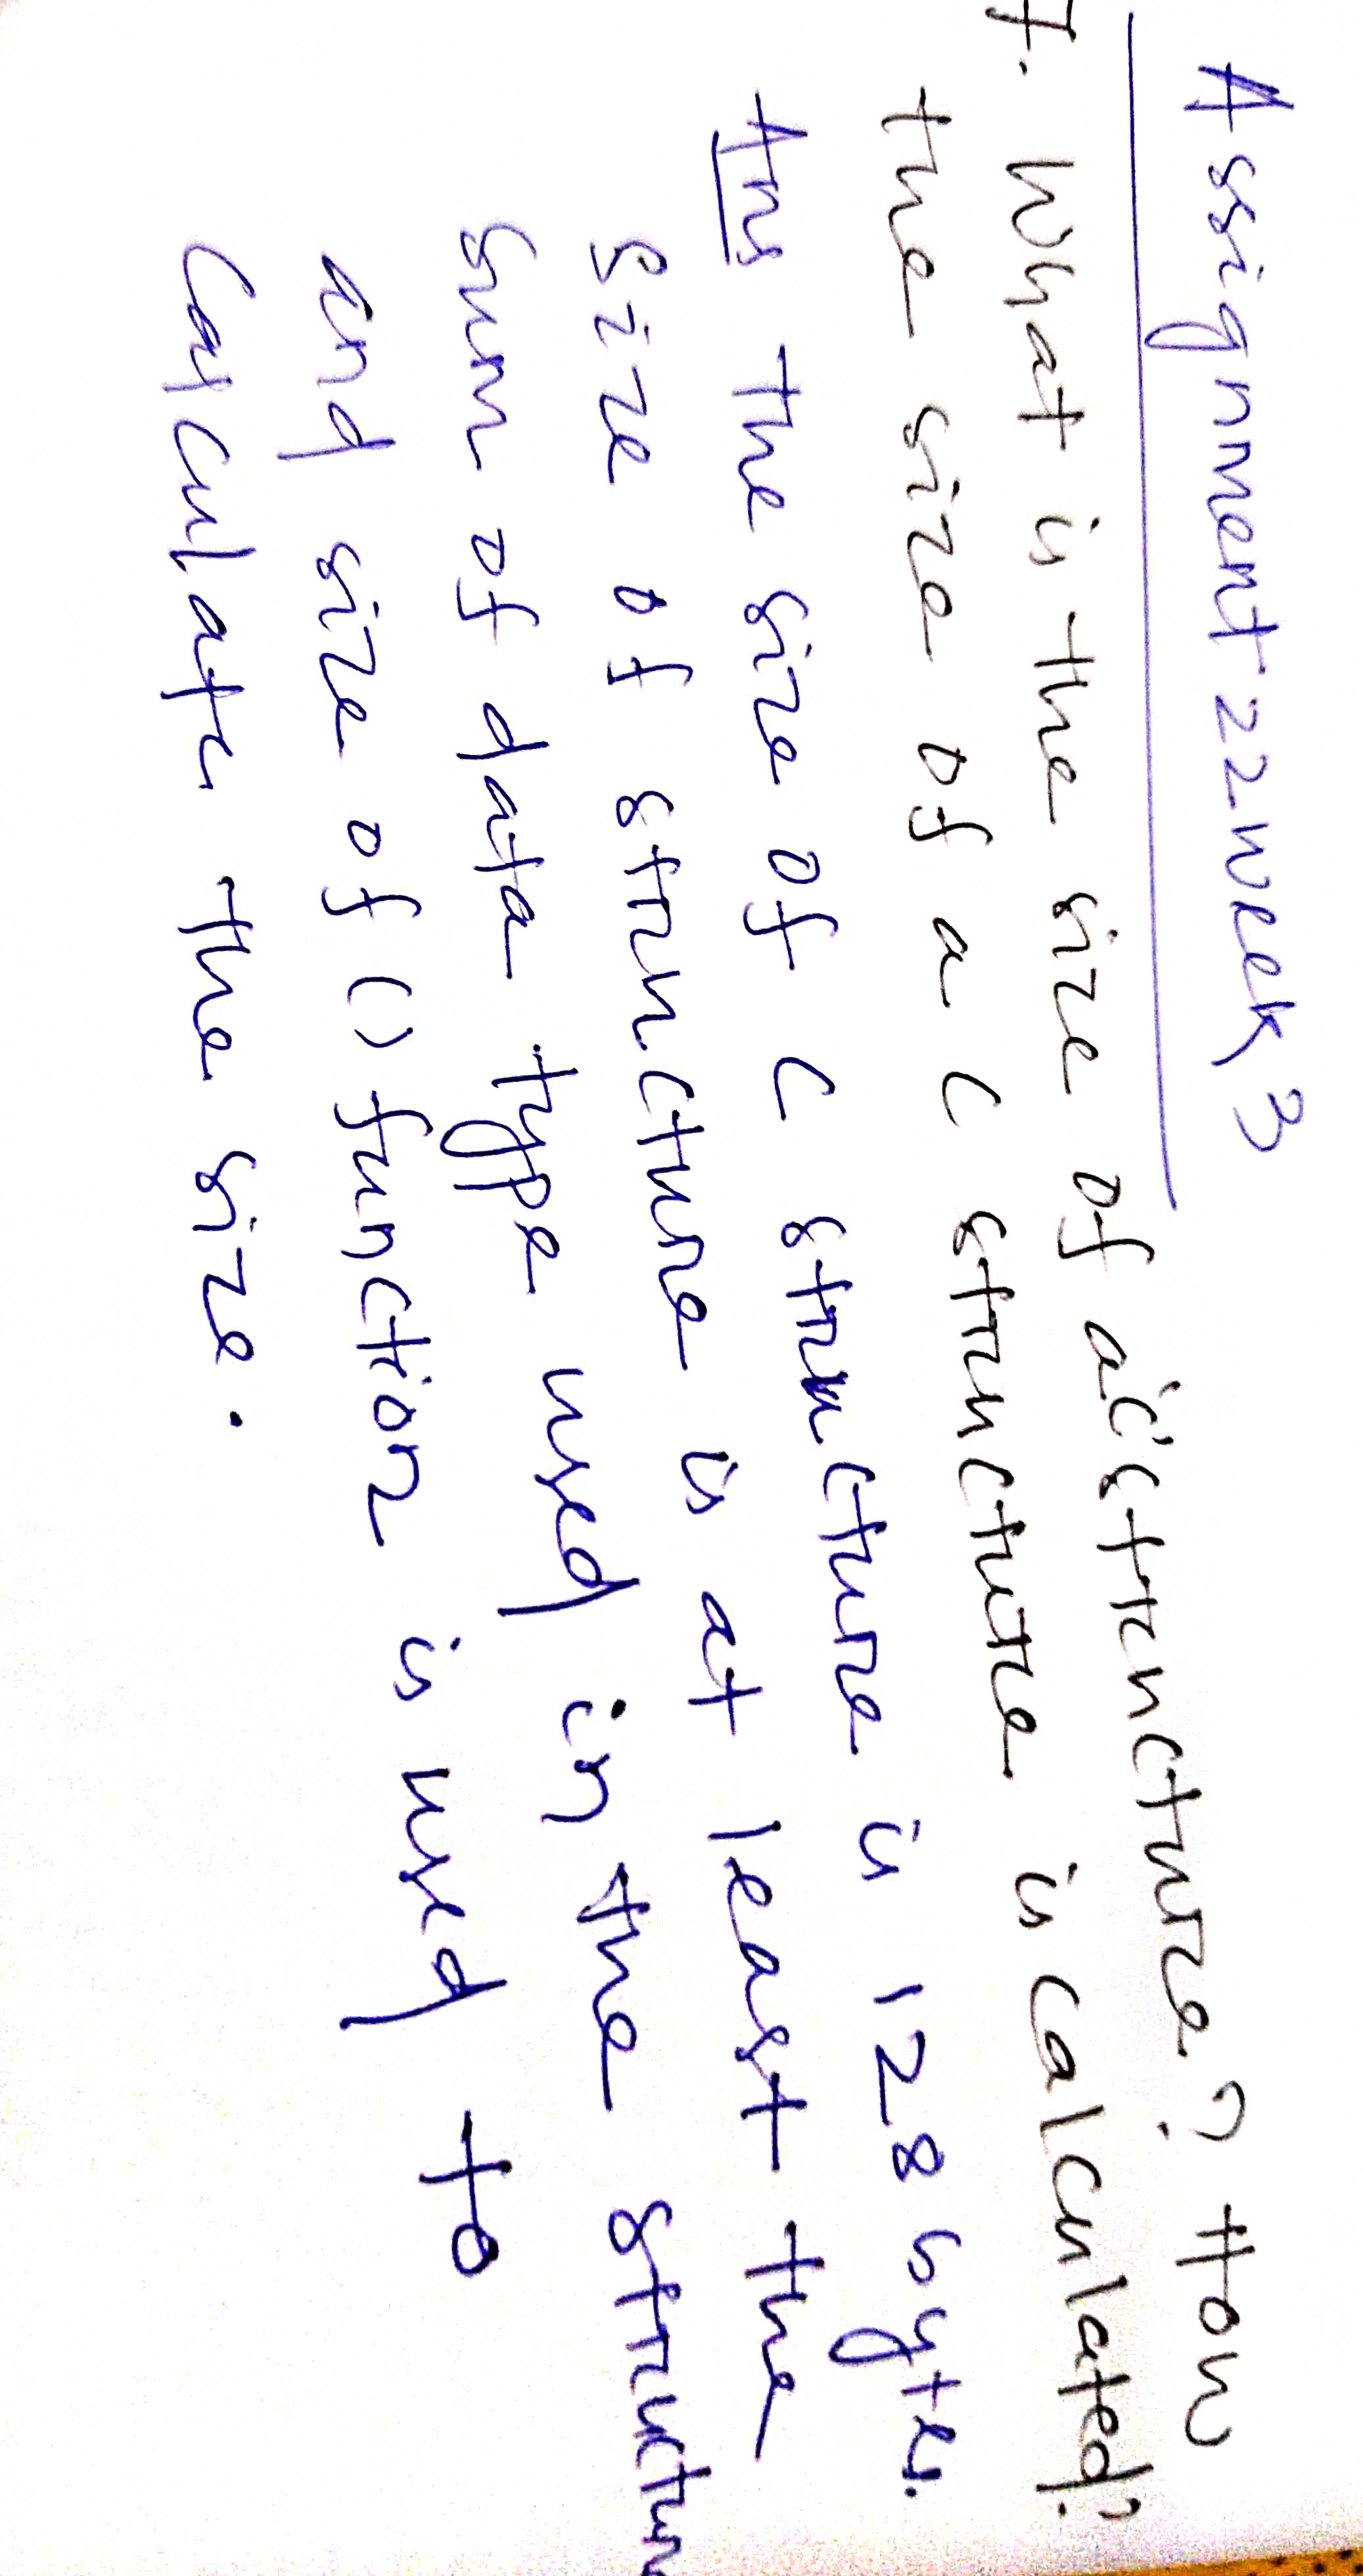 Assignment 22 week 3
7. What is the size of a 'c' structure? How
the size of a C structure is calculated?
Ans The size of C structure is 128 bytes.
Size of structure is at least the
sum of data type used in the structure
and size of () function is used to
calculate the size.